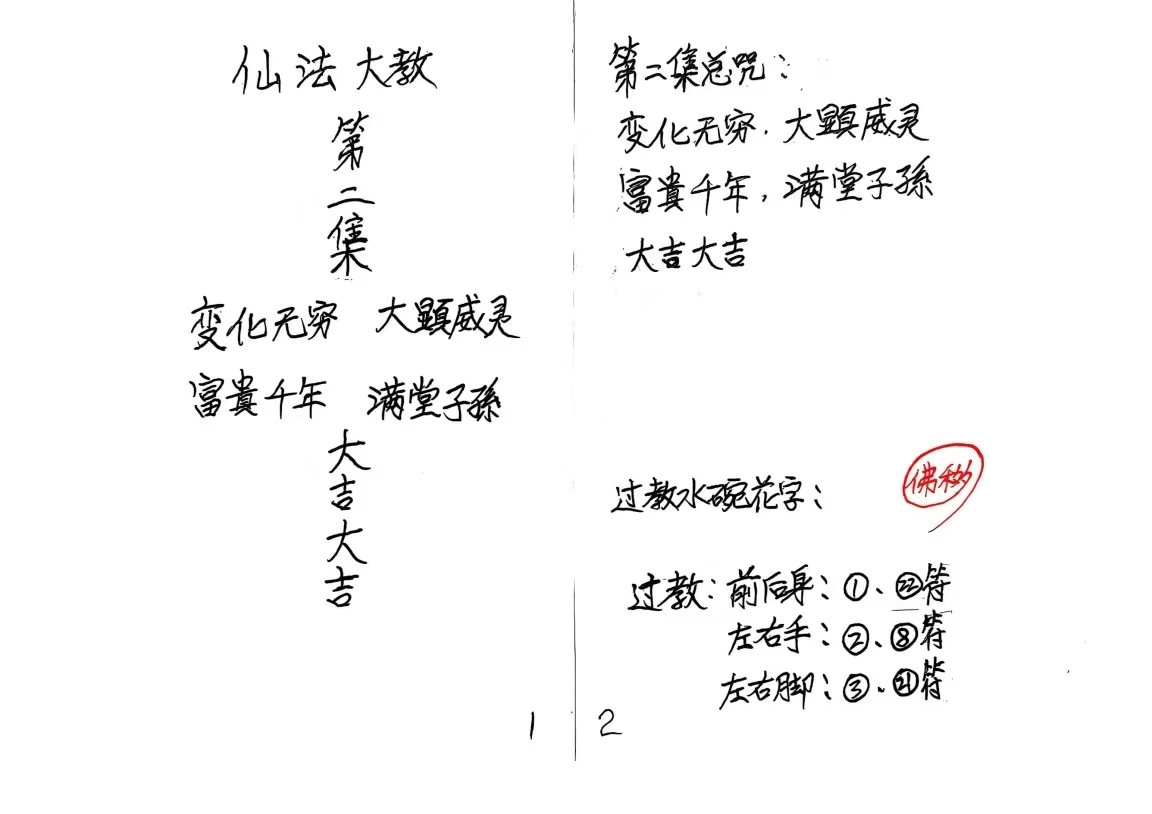 仙法大教
第二集
变化无穷 大顯威灵
富貴千年 满堂子孫
大吉大吉
1
第二集总咒：
变化无穷，大顯威灵
富貴千年，满堂子孫
大吉大吉
佛
过教水碗花字：
过教：前后身：①、㉒符
左右手：②、⑧符
左右脚：③、㉑符
2